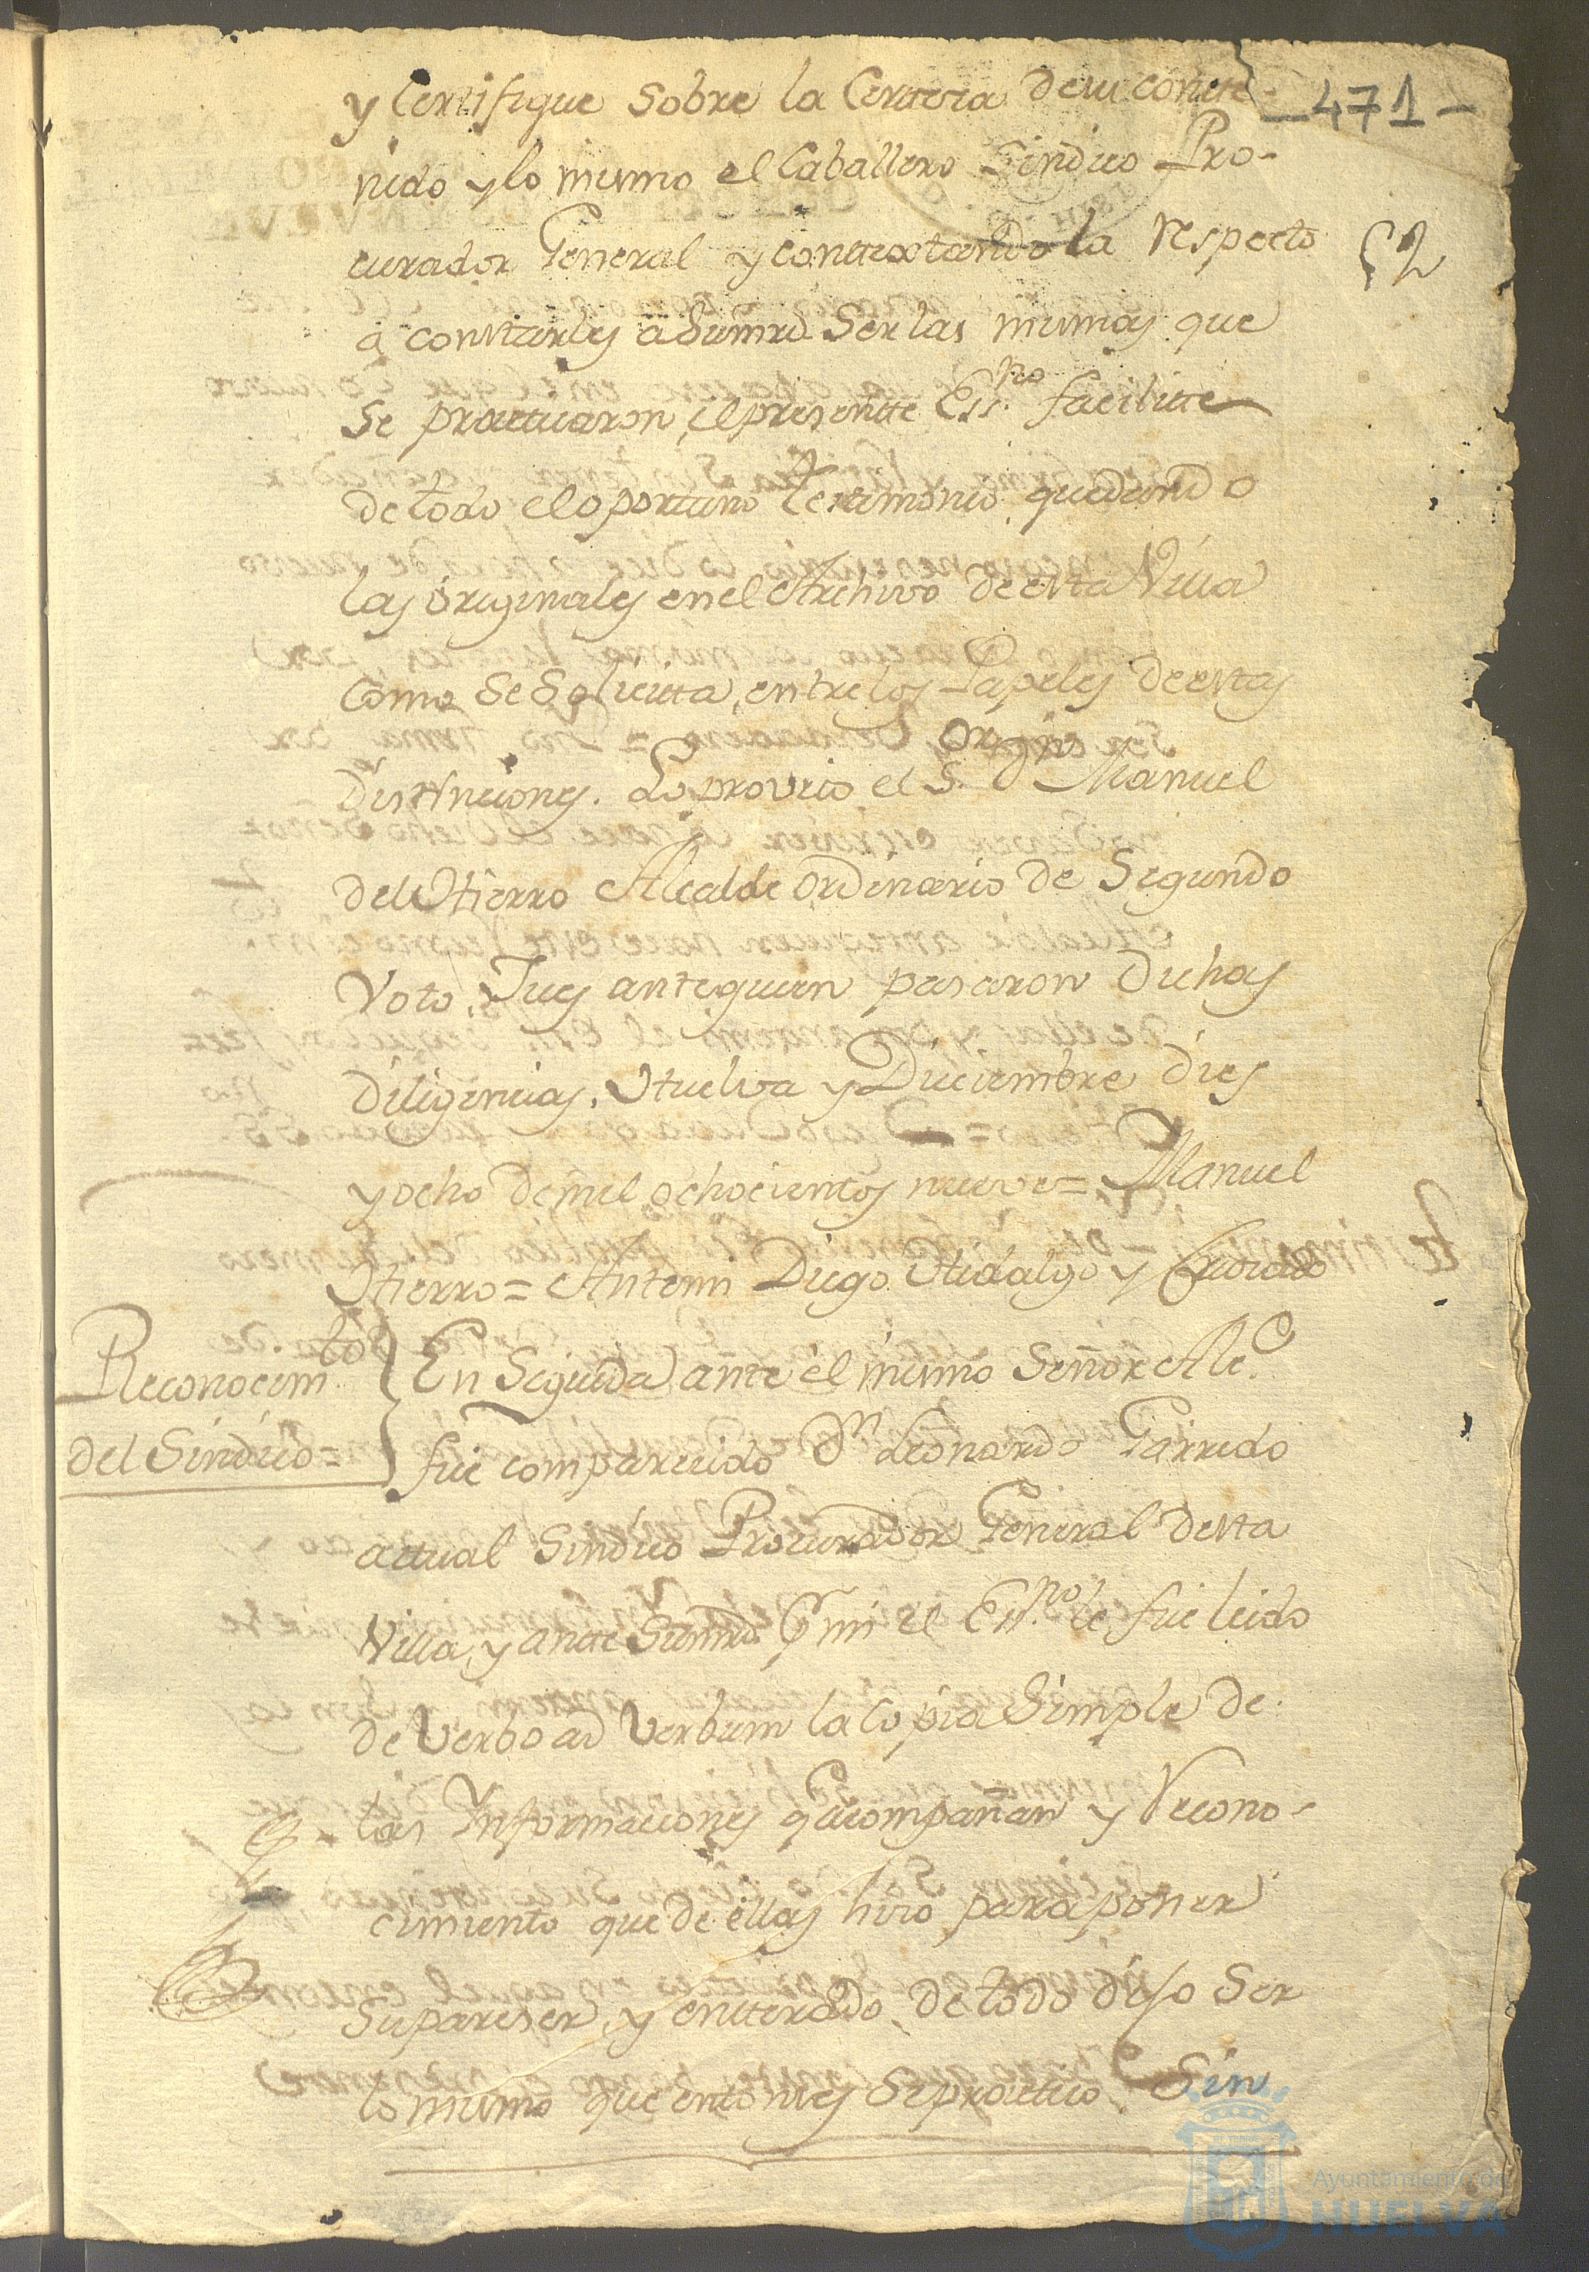 y Certifique sobre la Certeza de su conte-
-471-
nido y lo mismo el Caballero Sindico Pro-
curador General y contextandola respecto
52
a constarles a Sumrd. Ser las mismas que
Se practicaron, el presente Ess.no facilite
de todo el oportuno testimonio quedando
las originales en el Archivo de esta Villa
como se solicita, entre los Papeles de estas
Orign.s
distinciones. Lo proveio el S. Dn Manuel
del Hierro Alcalde ordinario de Segundo
Voto, Jues ante quien pasaron dichas
diligencias. Huelva y Diciembre dies
y ocho de mil ochocientos nueve = Manuel
Hierro = Antemi Diego Hidalgo y
Reconocim.to
del Sindico =
En Seguida ante el mismo Señor Alc.e
fue comparecido Dn Leonardo Garrido
actual Sindico Procurador General desta
Villa, y ante Sumrd. p.r mi el Ess.no le fue leido
de Verbo ad Verbum la Copia Simple de
las Informaciones q.e acompañan y recono-
cimiento que de ellas hizo para poner
su pareser, y enterado de todo dijo Ser
lo mismo que entonces se practico Sin
Ayuntamiento de
HUELVA